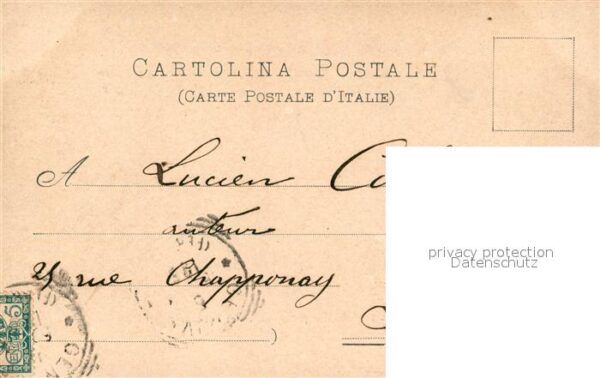 CARTOLINA POSTALE
(CARTE POSTALE D'ITALIE)
A Lucien
auteur
rue Chapponay
privacy protection
Datenschutz
5